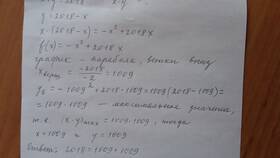 y = 2018 - x
x · (2018 - x) = -x² + 2018x
f(x) = -x² + 2018x
график - парабола, ветви вниз
x верш = -2018 / -2 = 1009
y₀ = -1009² + 2018 · 1009 = 1009 (2018 - 1009) =
= 1009 · 1009 - максимальное значение,
т.к. (x · y) max = 1009 · 1009, тогда
x = 1009 и y = 1009
Ответ: 2018 = 1009 + 1009